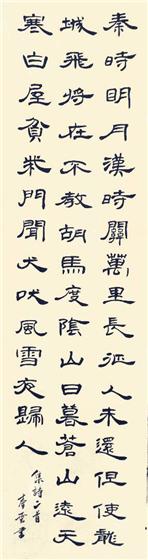 秦時明月漢時關萬里長征人未還但使龍
城飛將在不教胡馬度陰山日暮蒼山遠天
寒白屋貧柴門聞犬吠風雪夜歸人
集詩二首
書